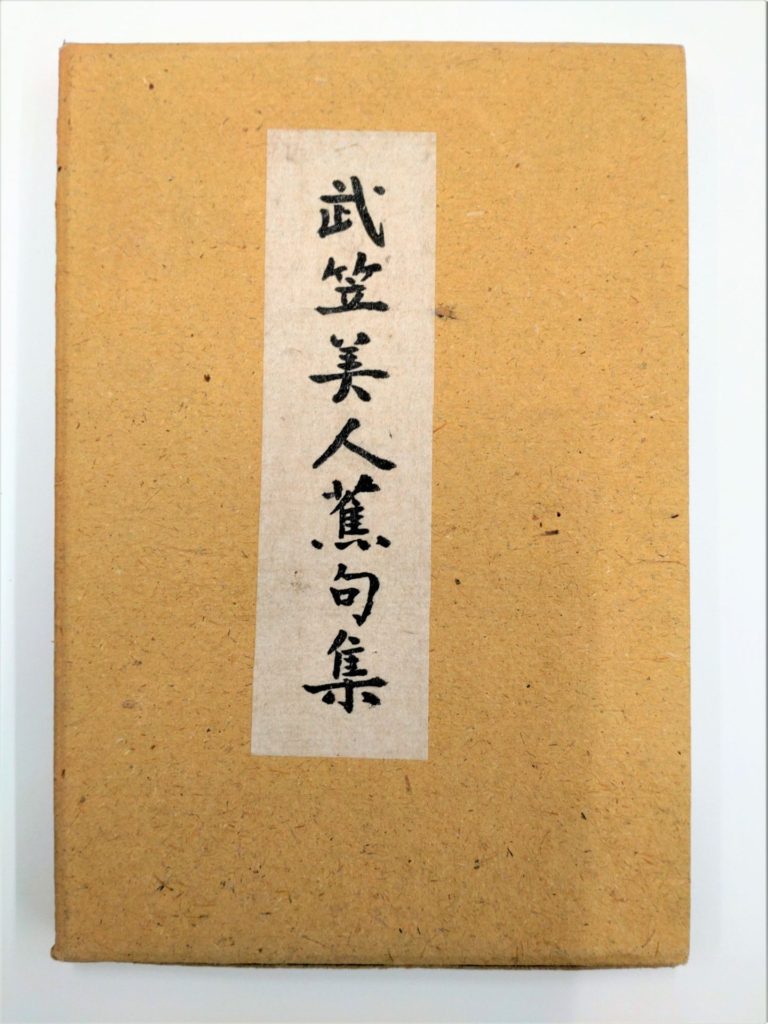 武笠美人蕉句集